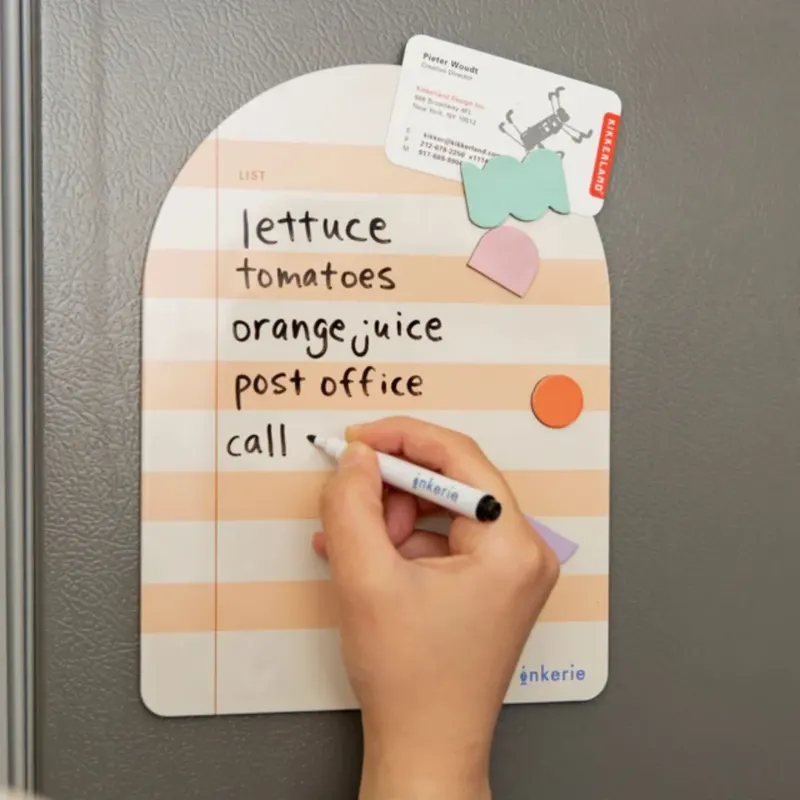 Pieter Woudt
Creative Director
Kikkerland Design Inc.
New York, NY 10012
kikker@kikkerland.com
212-678-2250 x111
KIKKERLAND
LIST
lettuce
tomatoes
orange juice
post office
call
inkerie
inkerie